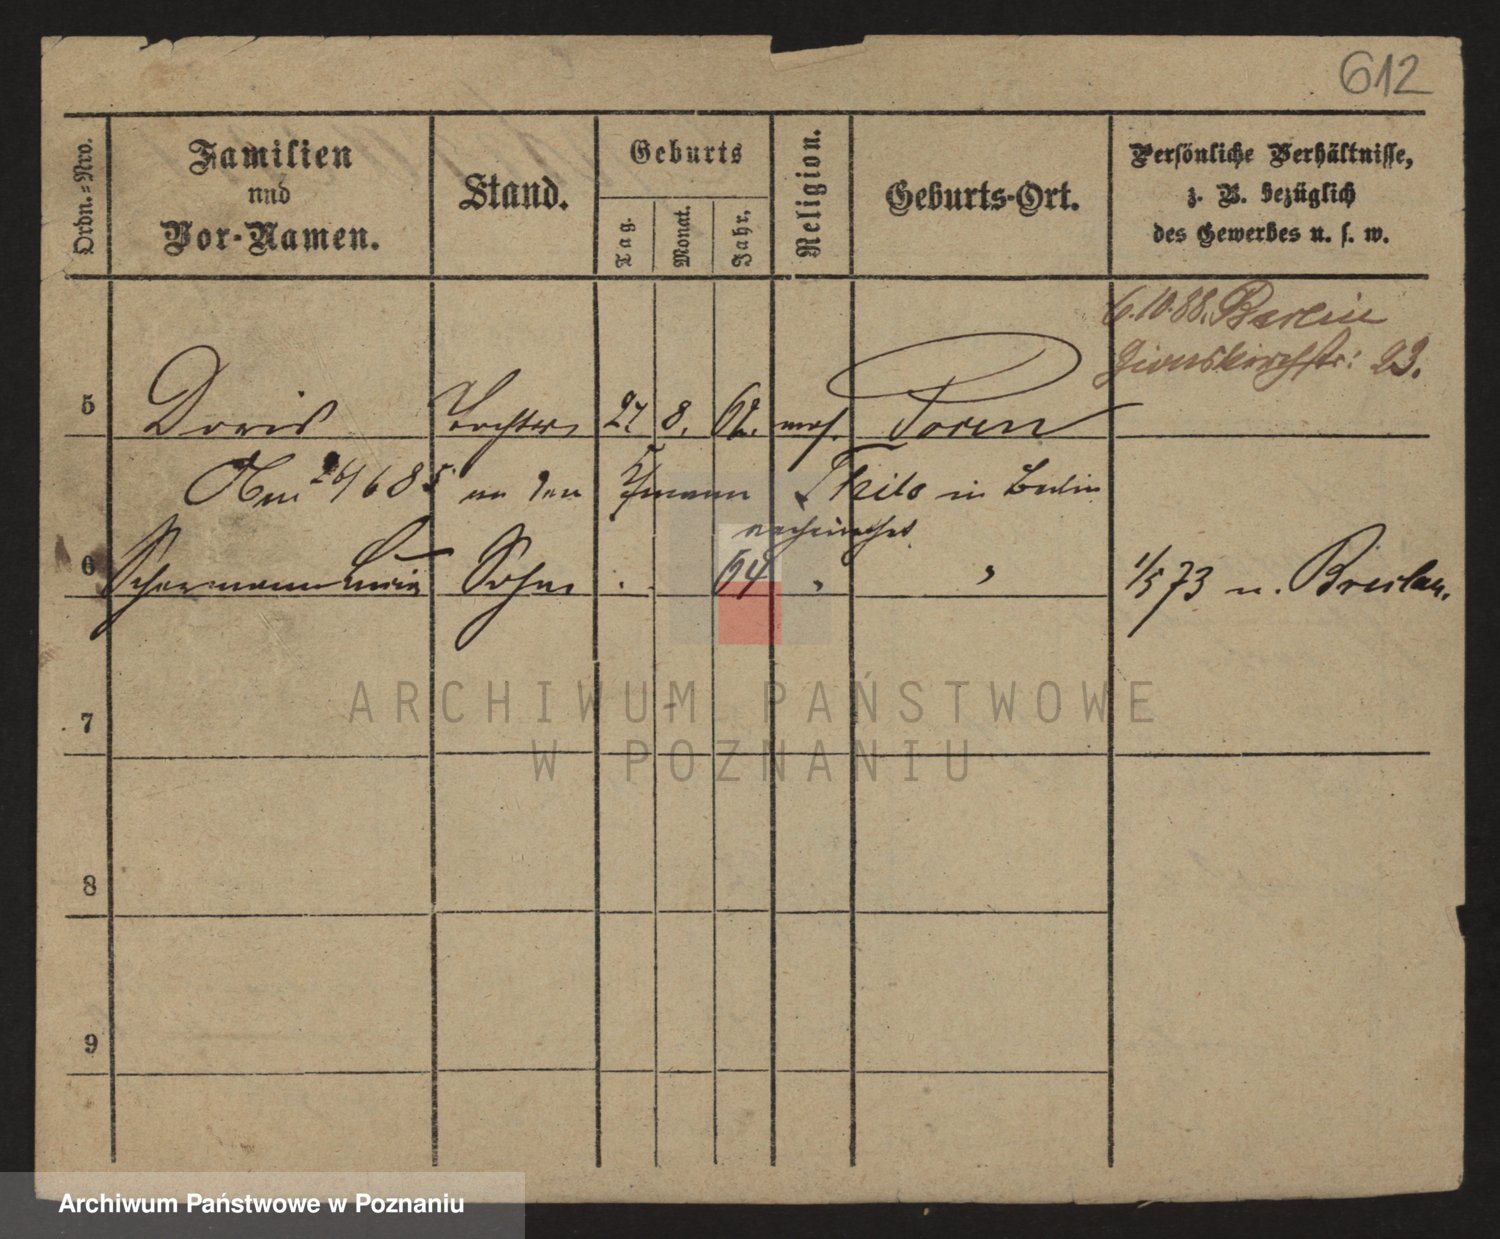 612
Ordn.=Nro.
Familien
und
Vor-Namen.
Stand.
Geburts
Tag.
Monat.
Jahr.
Religion.
Geburts-Ort.
Persönliche Verhältnisse,
z. B. bezüglich
des Gewerbes u. s. w.
6.10.88. Berlin
Zionskirchstr: 23.
5 Doris Tochter 27. 8. 62. mos. Posen
Am 24/6 85 an den Kfmann Thilo in Berlin
6 Schermann Sohn 64 " " 1/5 73 n. Breslau.
7
8
9
ARCHIWUM PAŃSTWOWE
W POZNANIU
Archiwum Państwowe w Poznaniu